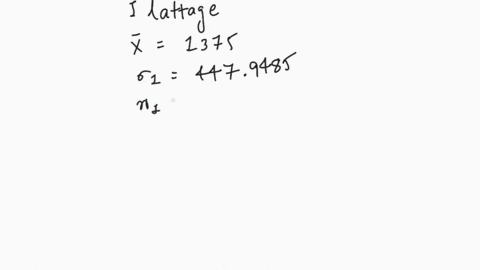 I lattage
x̄ = 1375
σ₁ = 447.9485
n₁